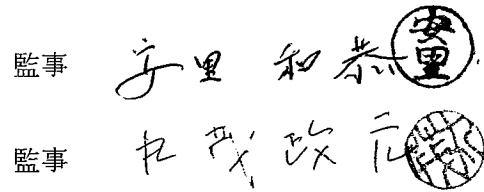 監事 安里 和恭 安里
監事 茂政元